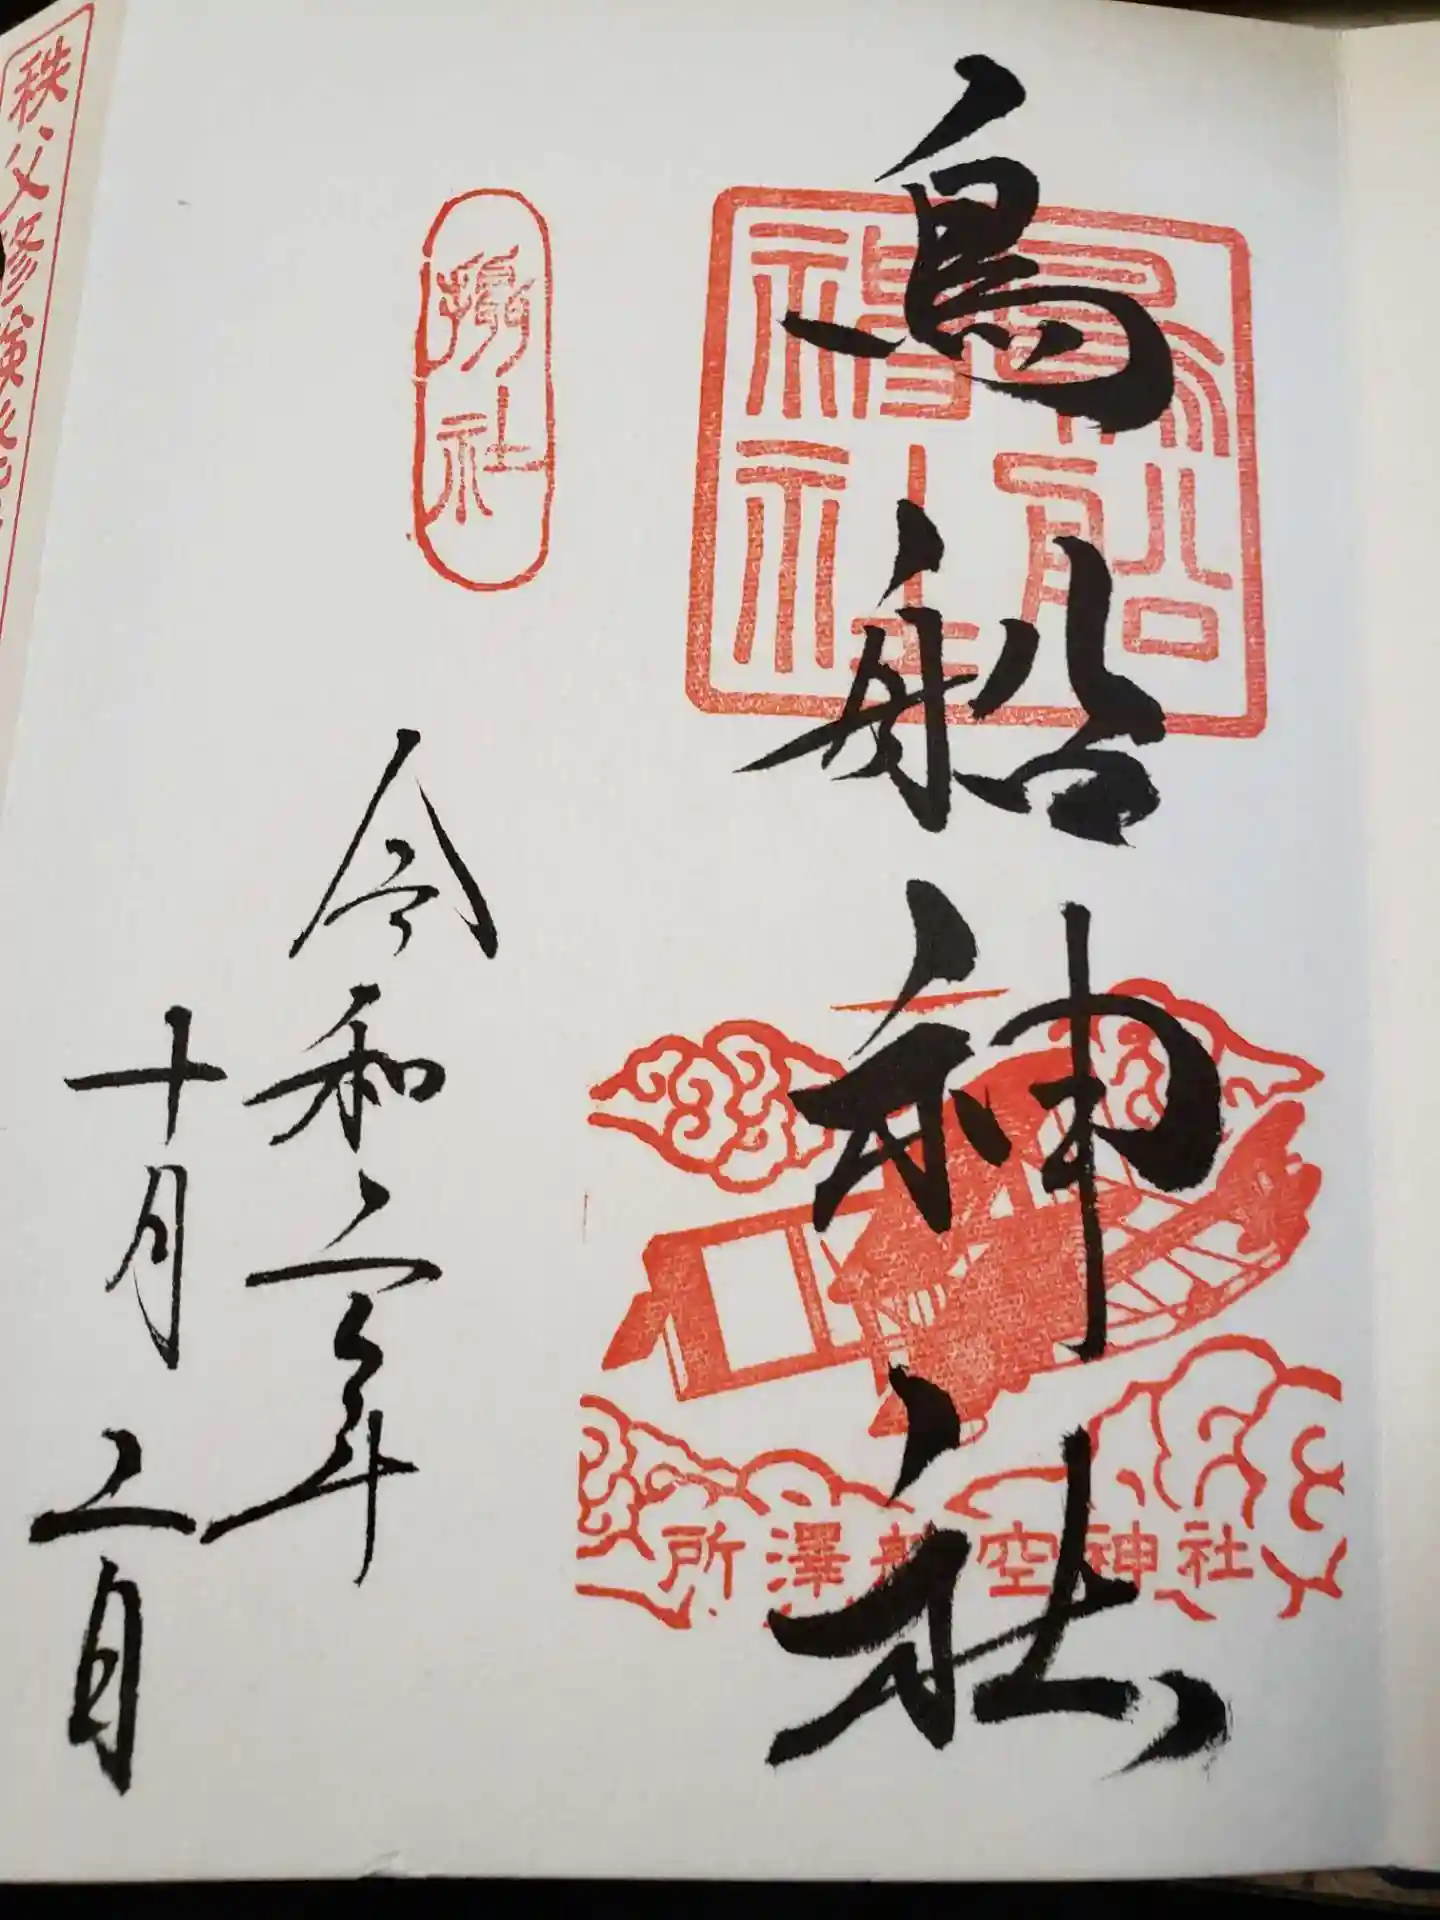 鳥船神社
鳥船
神社
所澤航空神社
摂社
令和二年
十月二日
秩父修験